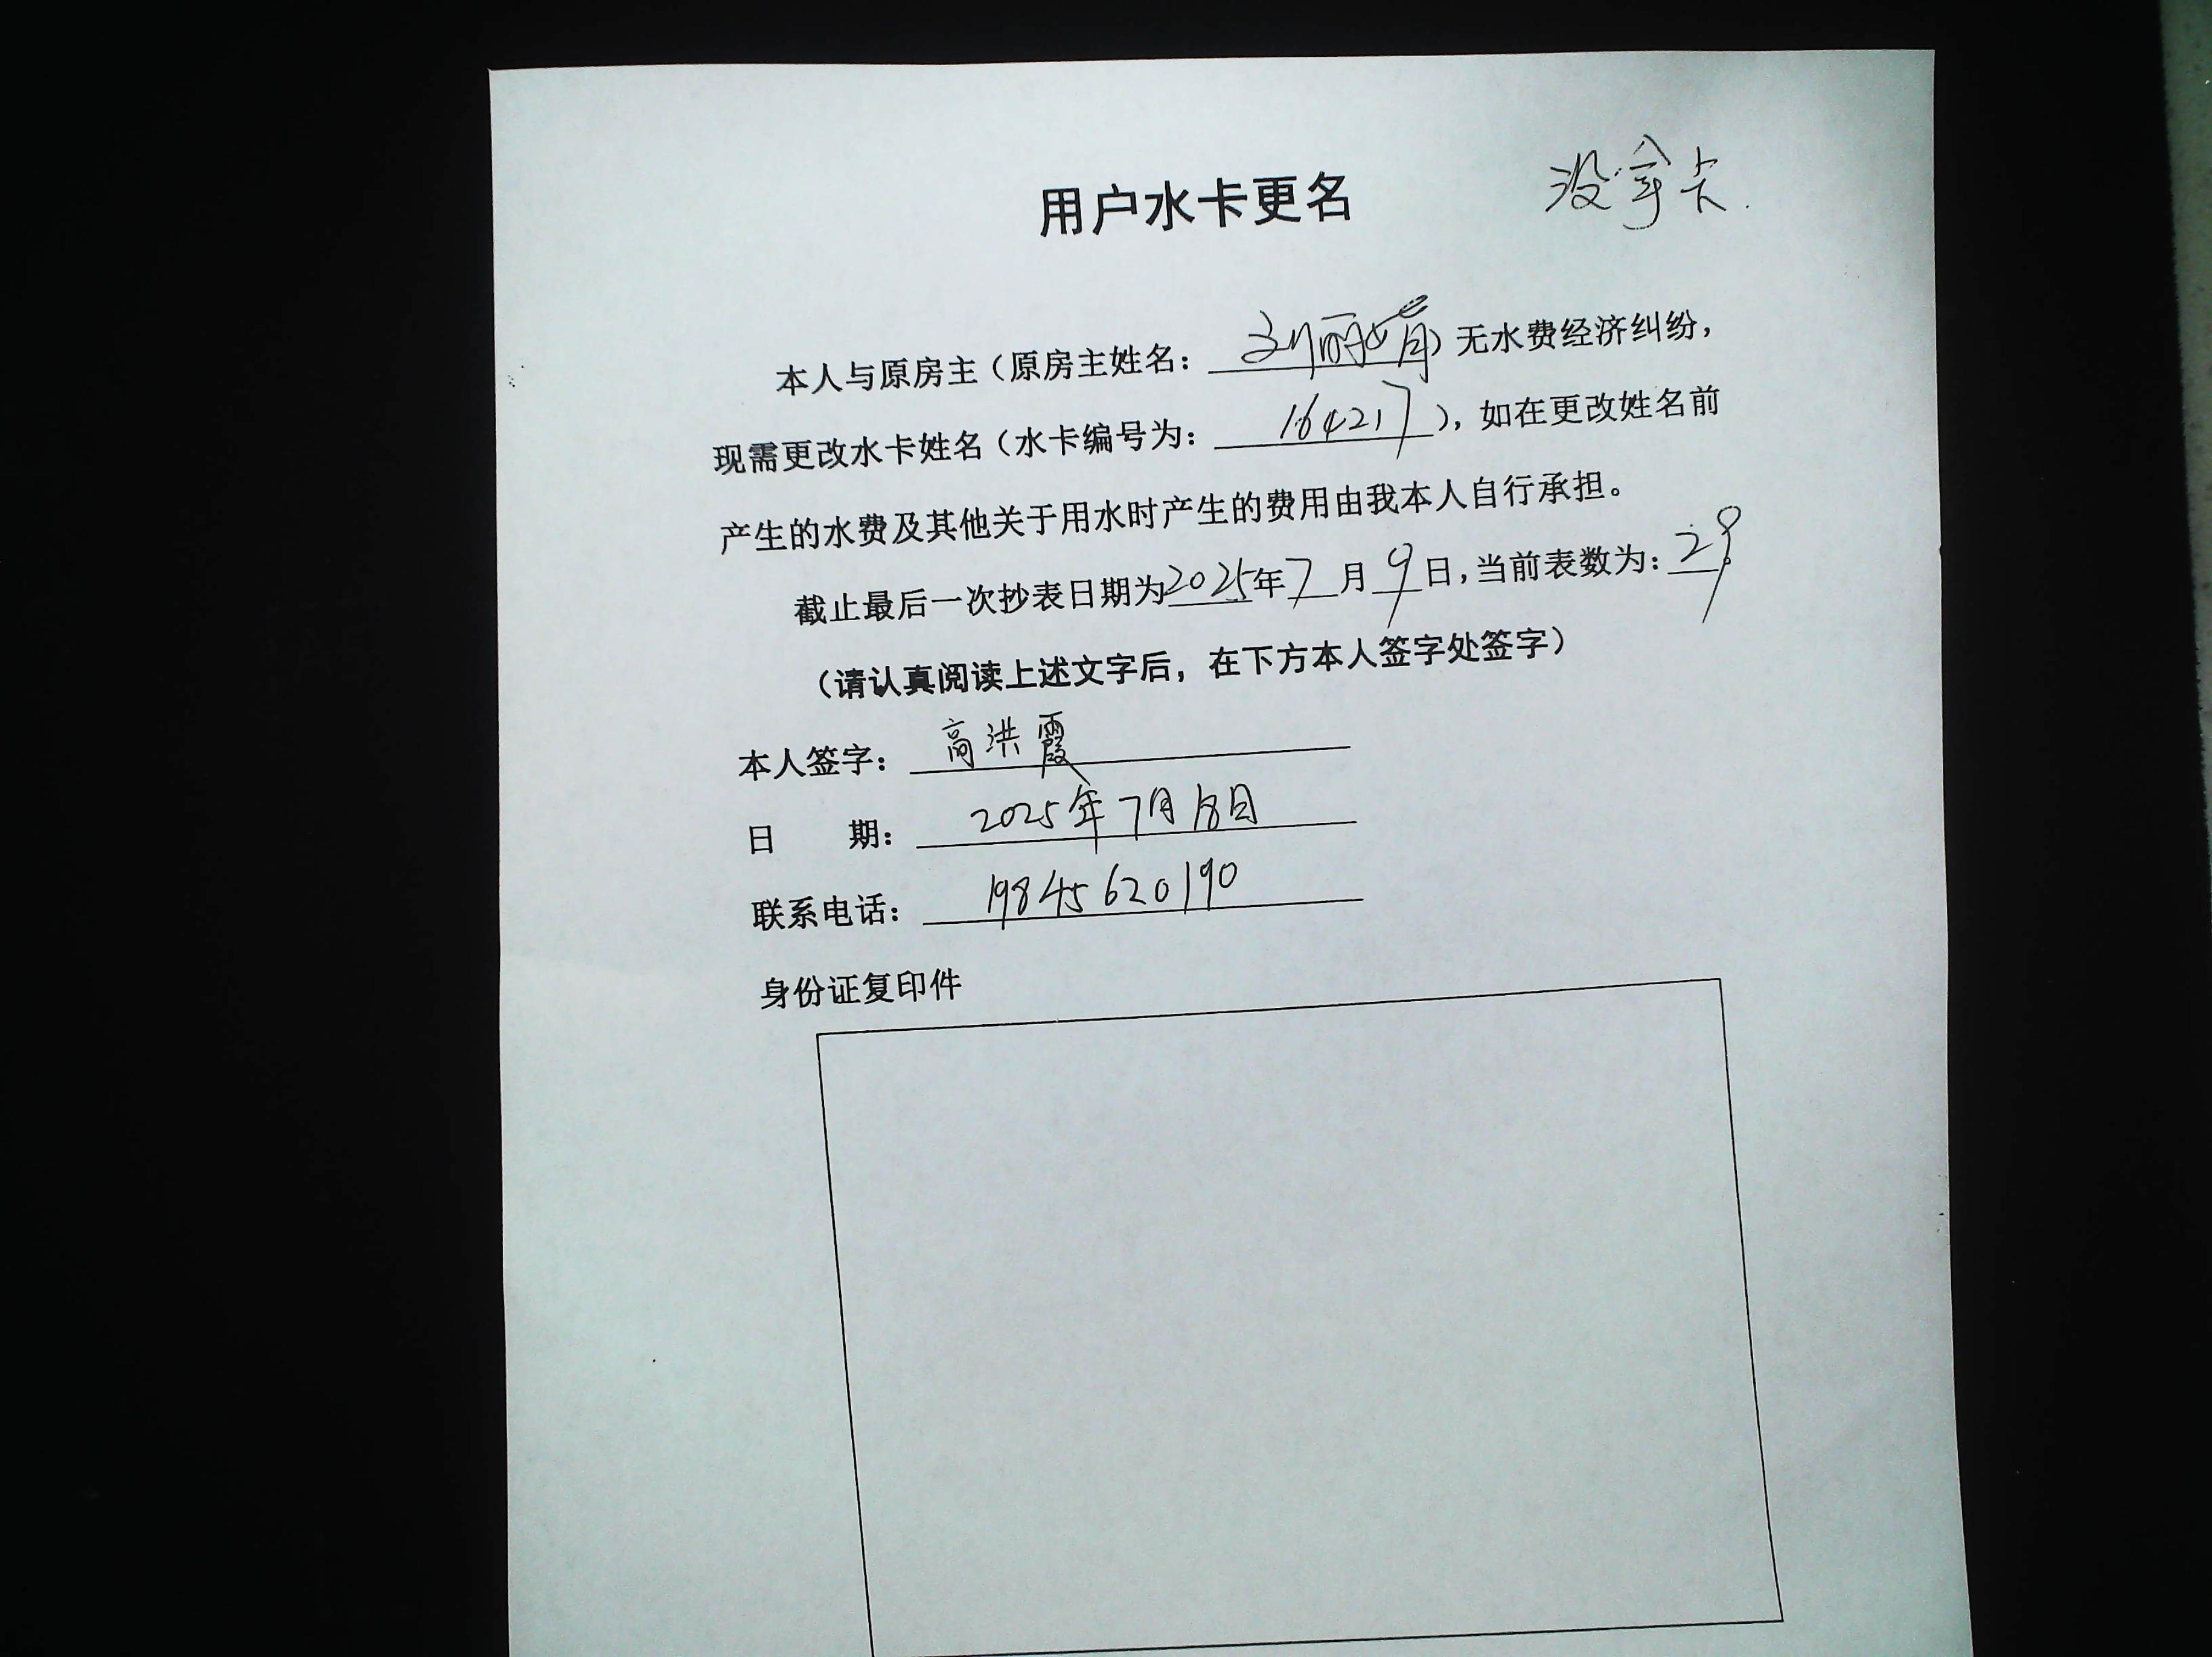 用户水卡更名
没拿卡.
本人与原房主（原房主姓名：刘丽）无水费经济纠纷，
现需更改水卡姓名（水卡编号为：164217），如在更改姓名前
产生的水费及其他关于用水时产生的费用由我本人自行承担。
截止最后一次抄表日期为2025年7月9日，当前表数为：29。
（请认真阅读上述文字后，在下方本人签字处签字）
本人签字：高洪霞
日 期：2025年7月18日
联系电话：19845620190
身份证复印件